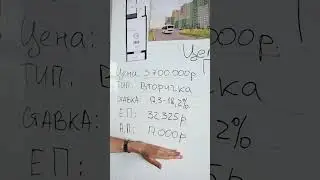 Цена: 3.700.000р.
Тип: Вторичка
Ставка: 17,3-18,2%
ЕП: 32.325р
А.П.: 17.000р